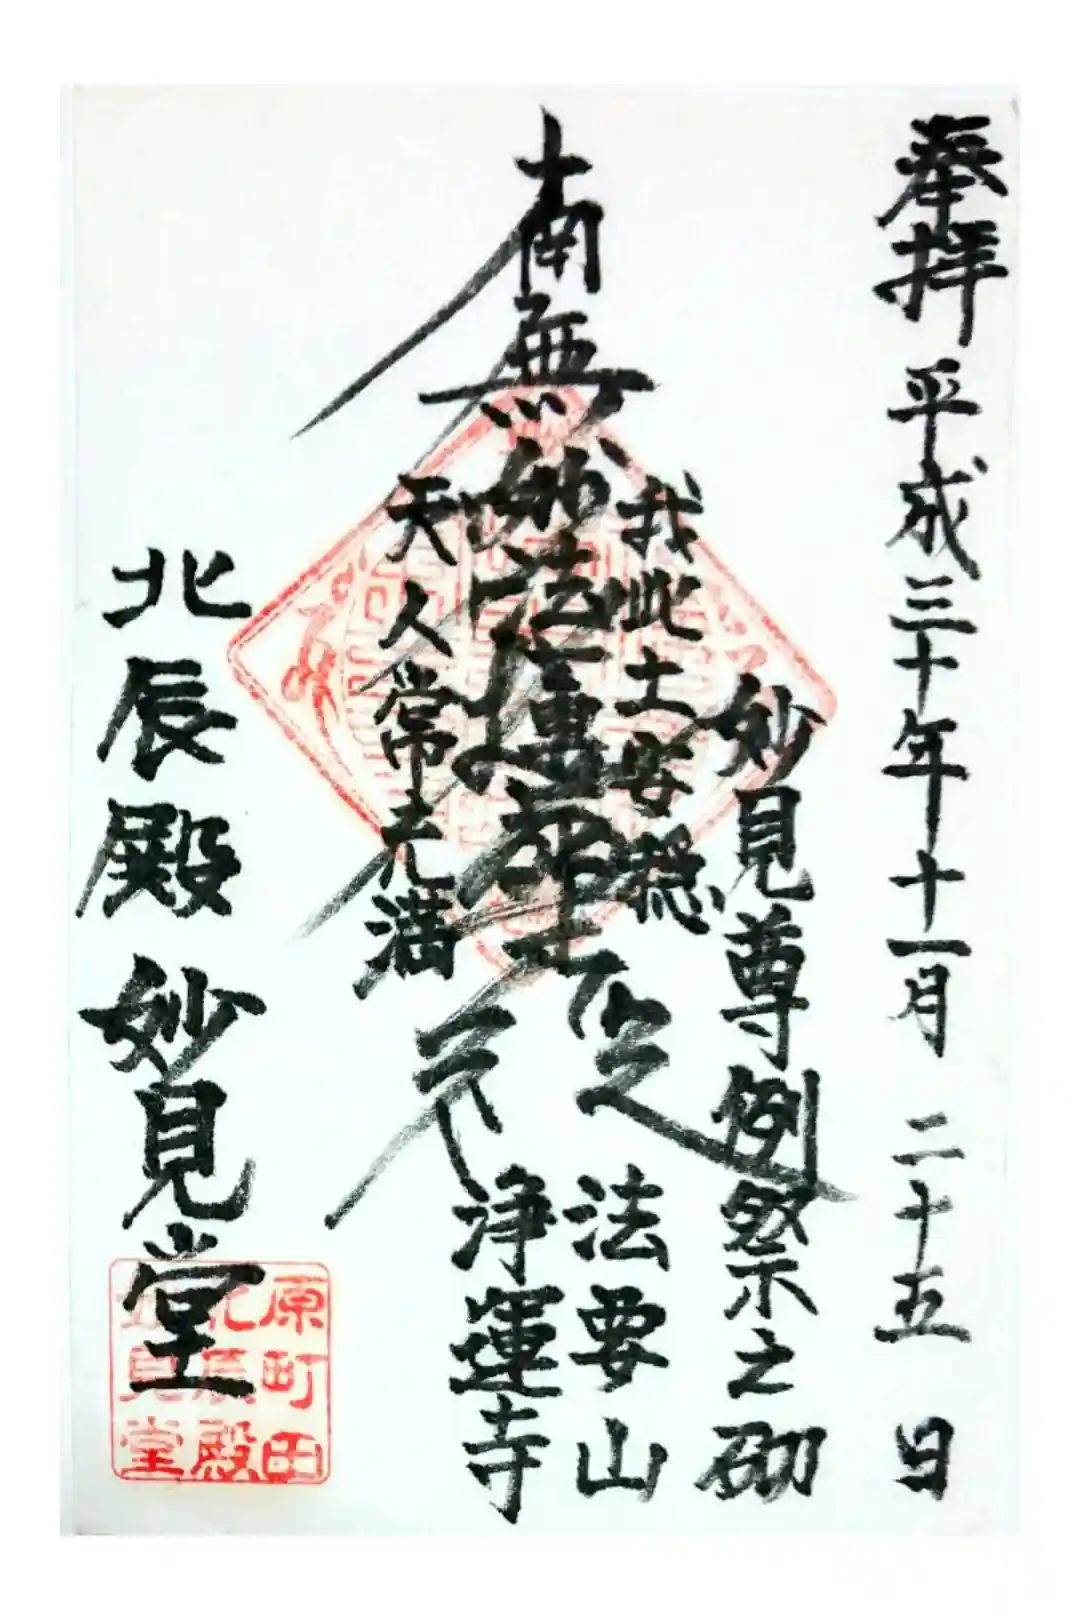 奉拝 平成三十年十一月二十五日
妙見尊例祭之砌
我此土安穏
南無妙法蓮華経
天人常充満
法要山
浄運寺
北辰殿妙見堂
原町田
北辰殿
妙見堂